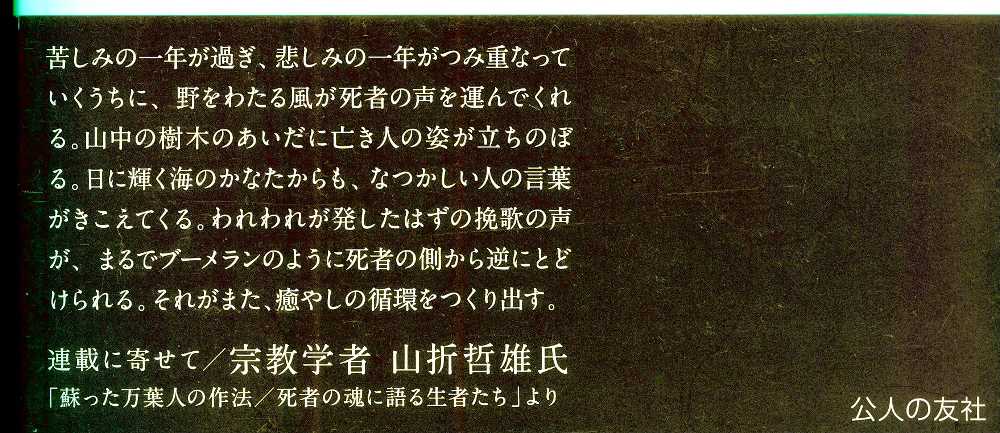 苦しみの一年が過ぎ、悲しみの一年がつみ重なって
いくうちに、野をわたる風が死者の声を運んでくれ
る。山中の樹木のあいだに亡き人の姿が立ちのぼ
る。日に輝く海のかなたからも、なつかしい人の言葉
がきこえてくる。われわれが発したはずの挽歌の声
が、まるでブーメランのように死者の側から逆にとど
けられる。それがまた、癒やしの循環をつくり出す。
連載に寄せて／宗教学者 山折哲雄氏
「蘇った万葉人の作法／死者の魂に語る生者たち」より
公人の友社